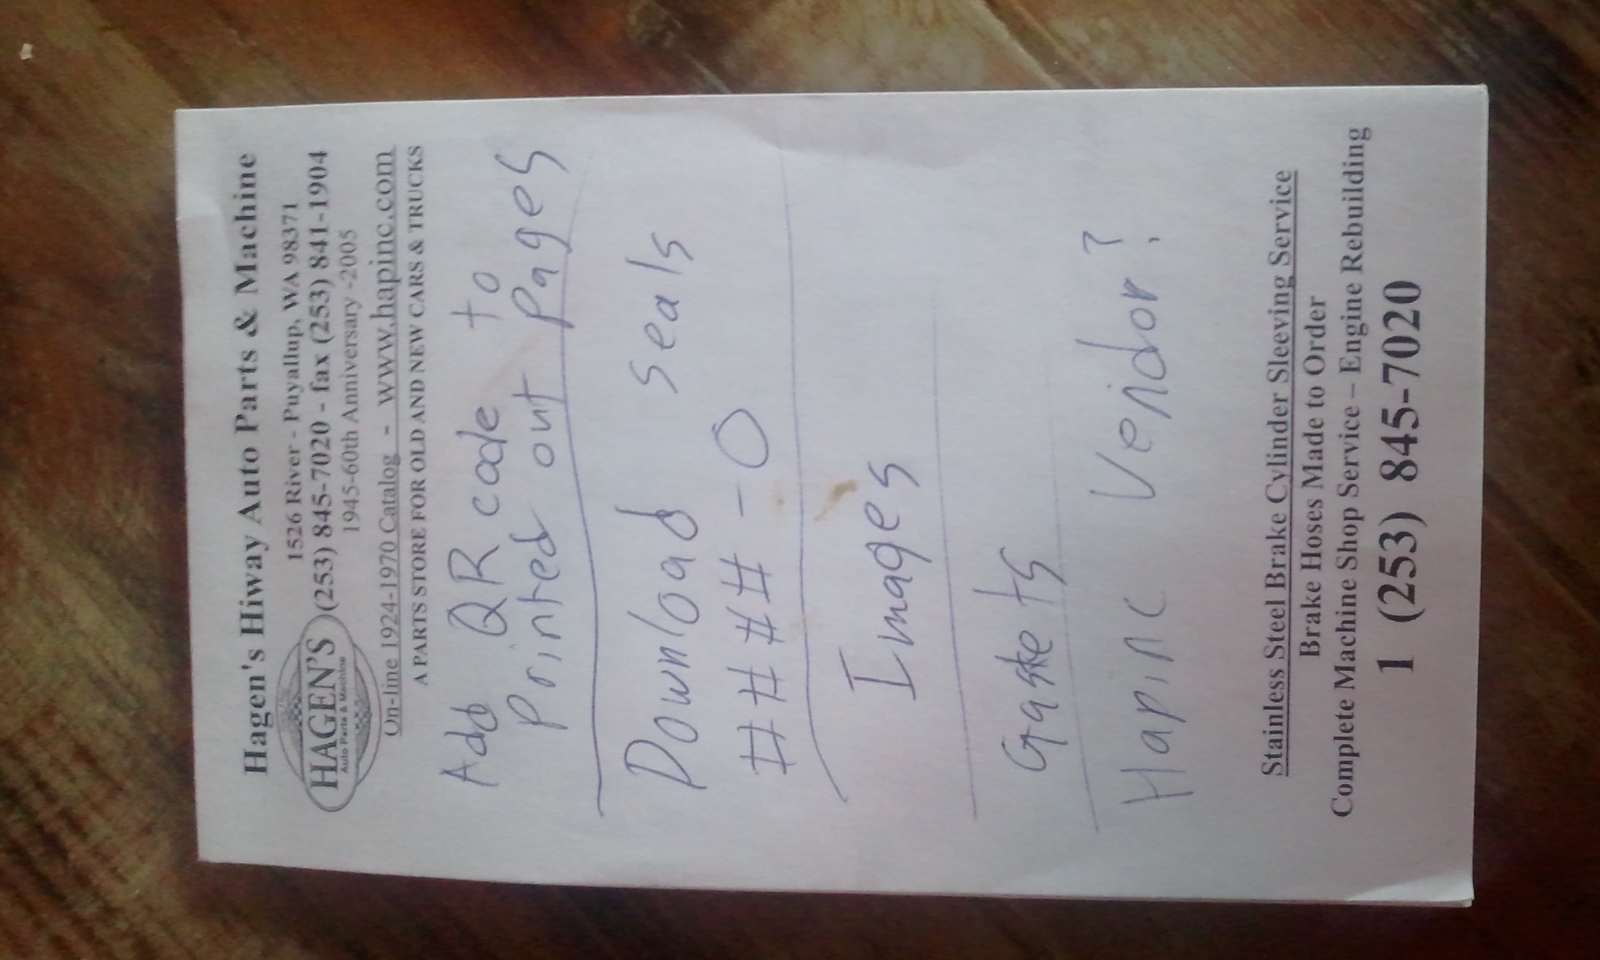 Hagen's Hiway Auto Parts & Machine
1526 River - Puyallup, WA 98371
(253) 845-7020 - fax (253) 841-1904
1945-60th Anniversary -2005
HAGEN'S
Auto Parts & Machine
On-line 1924-1970 Catalog - www.hapinc.com
A PARTS STORE FOR OLD AND NEW CARS & TRUCKS
Add QR code to
Printed out Pages
Download seals
#### - O
Images
Gaskets
Hapinc Vendor?
Stainless Steel Brake Cylinder Sleeving Service
Brake Hoses Made to Order
Complete Machine Shop Service – Engine Rebuilding
1 (253) 845-7020